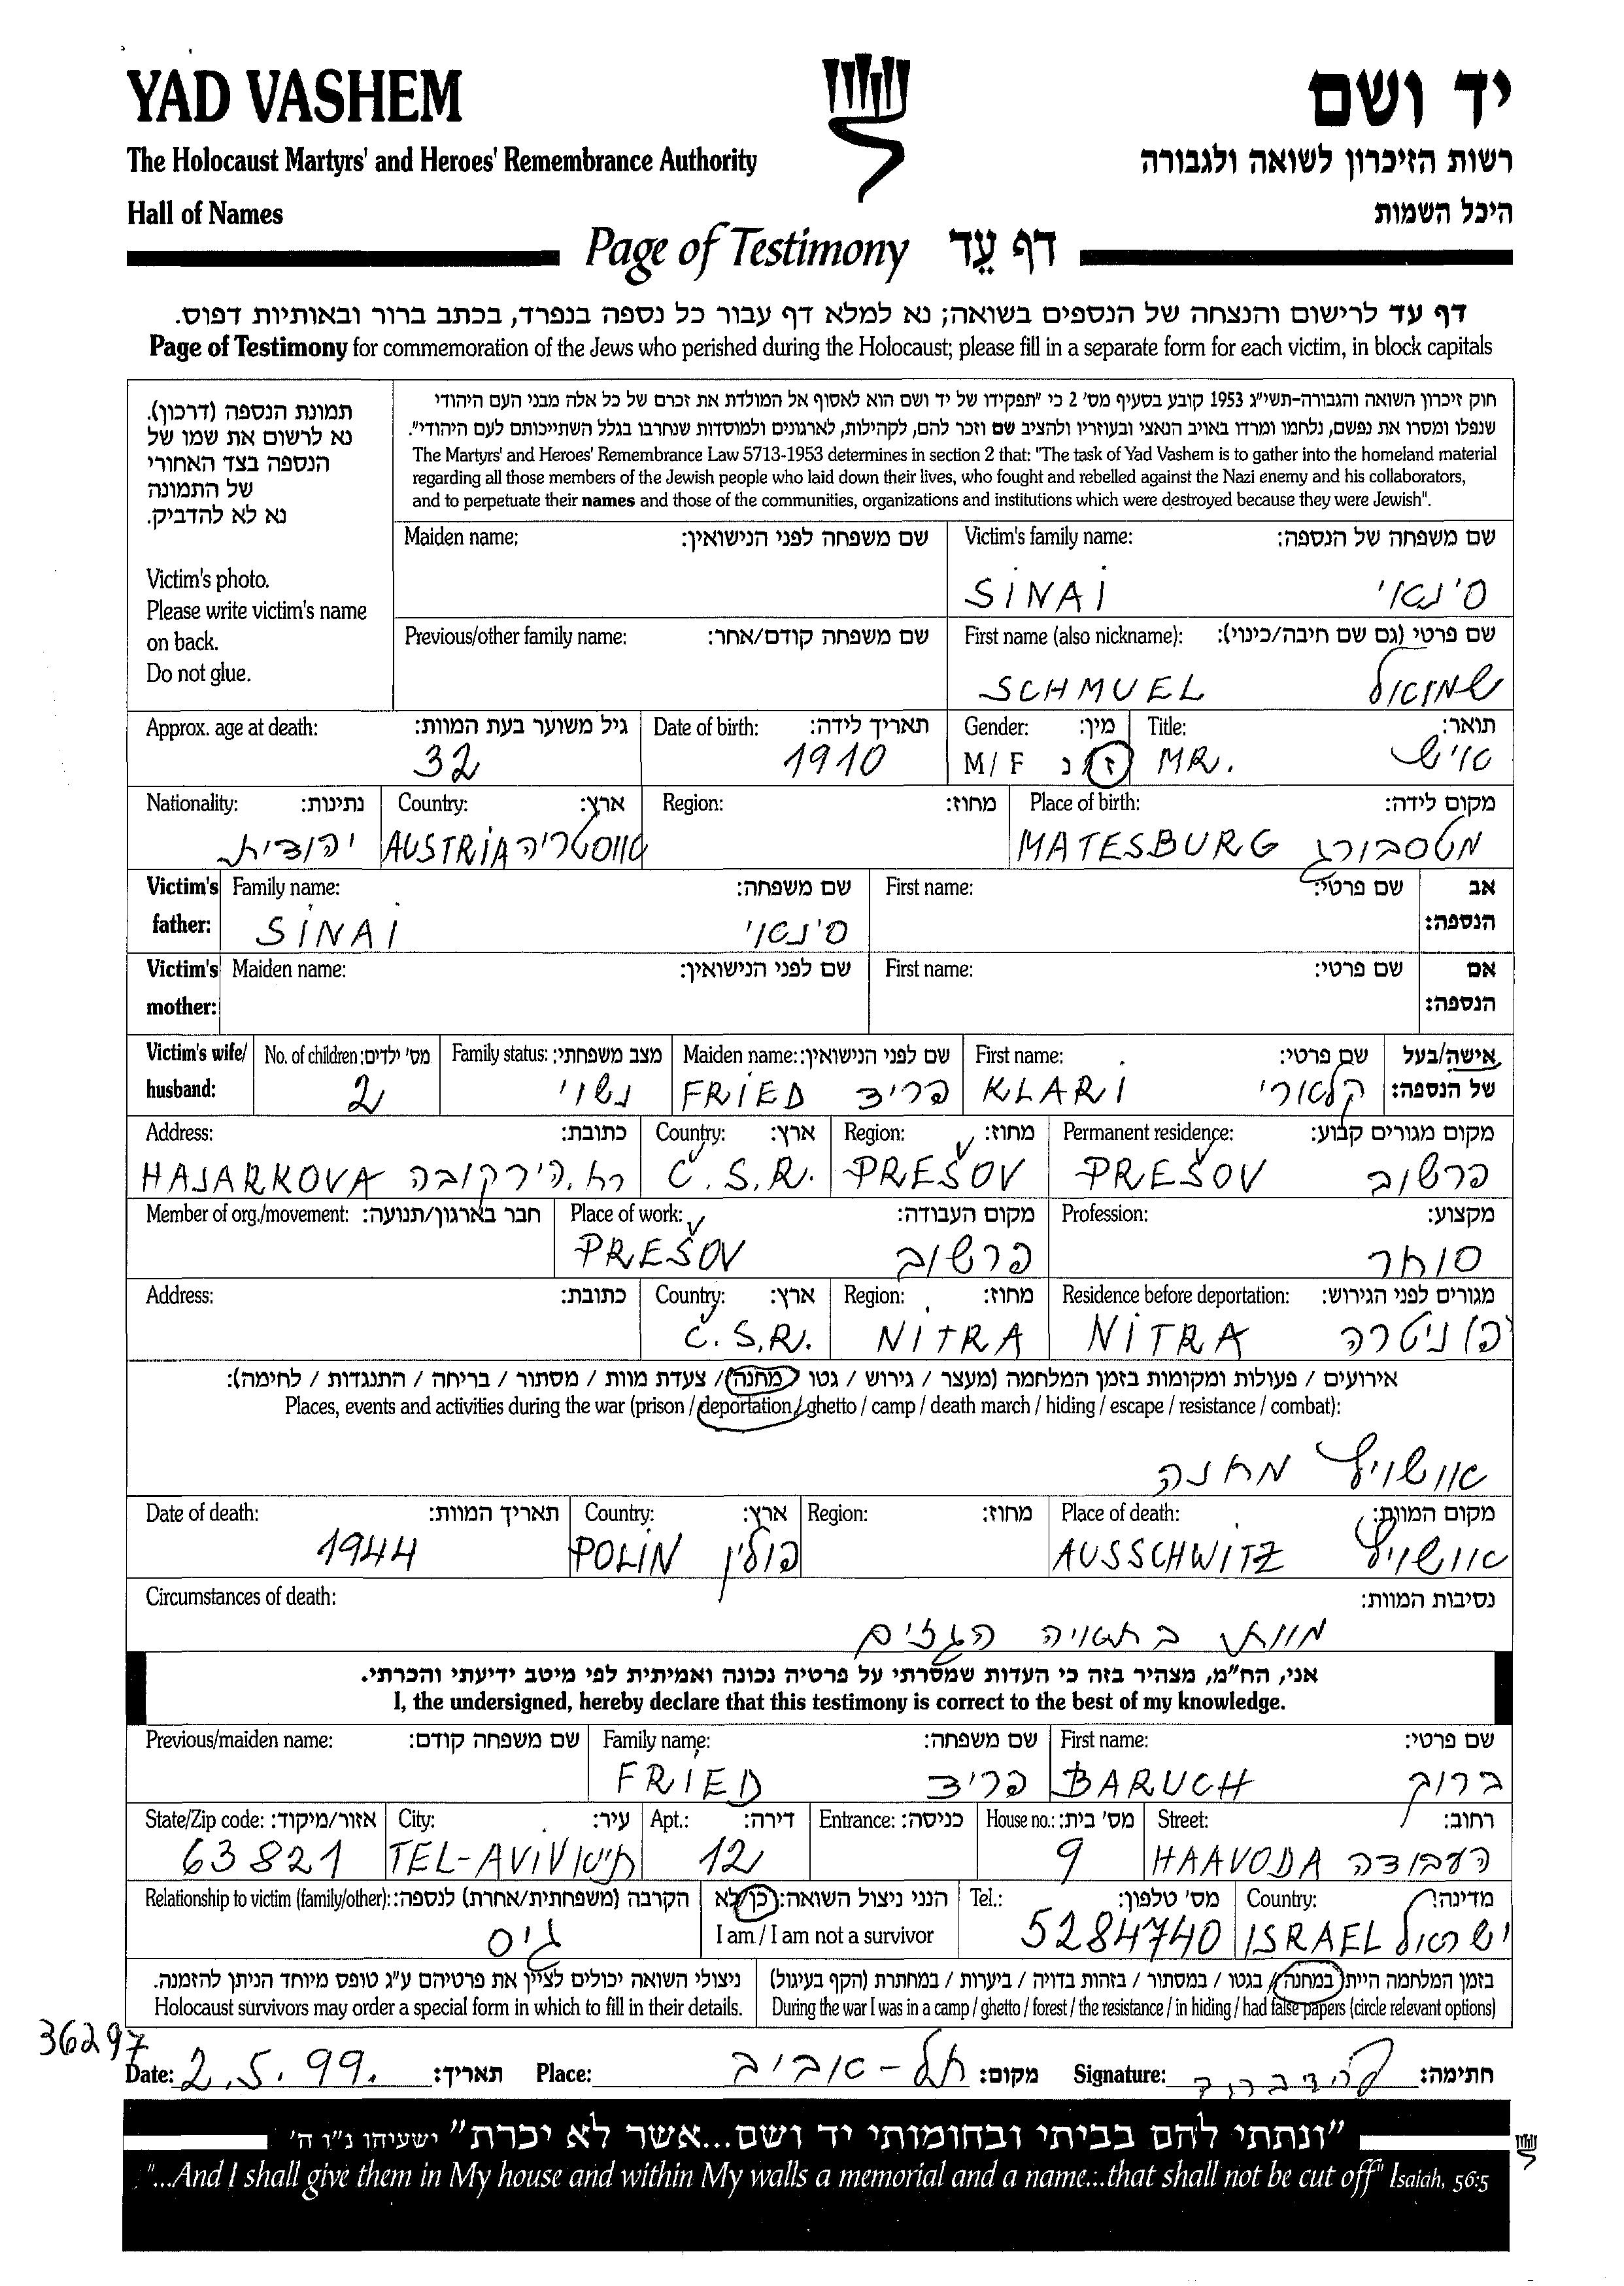 YAD VASHEM
יד ושם
The Holocaust Martyrs' and Heroes' Remembrance Authority
רשות הזיכרון לשואה ולגבורה
Hall of Names
היכל השמות
Page of Testimony דף עֵד
דף עד לרישום והנצחה של הנספים בשואה; נא למלא דף עבור כל נספה בנפרד, בכתב ברור ובאותיות דפוס.
Page of Testimony for commemoration of the Jews who perished during the Holocaust; please fill in a separate form for each victim, in block capitals
תמונת הנספה (דרכון).
נא לרשום את שמו של
הנספה בצד האחורי
של התמונה
נא לא להדביק.
Victim's photo.
Please write victim's name
on back.
Do not glue.
חוק זיכרון השואה והגבורה-תשי"ג 1953 קובע בסעיף מס' 2 כי "תפקידו של יד ושם הוא לאסוף אל המולדת את זכרם של כל אלה מבני העם היהודי
שנפלו ומסרו את נפשם, נלחמו ומרדו באויב הנאצי ובעוזריו ולהציב שם וזכר להם, לקהילות, לארגונים ולמוסדות שנחרבו בגלל השתייכותם לעם היהודי".
The Martyrs' and Heroes' Remembrance Law 5713-1953 determines in section 2 that: "The task of Yad Vashem is to gather into the homeland material
regarding all those members of the Jewish people who laid down their lives, who fought and rebelled against the Nazi enemy and his collaborators,
and to perpetuate their names and those of the communities, organizations and institutions which were destroyed because they were Jewish".
Maiden name: שם משפחה לפני הנישואין: Victim's family name: שם משפחה של הנספה:
SINAI סינאי
Previous/other family name: שם משפחה קודם/אחר: First name (also nickname): שם פרטי (גם שם חיבה/כינוי):
SCHMUEL שמואל
Approx. age at death: גיל משוער בעת המוות: Date of birth: תאריך לידה: Gender: מין: Title: תואר:
32 1910 M/F ז/נ MR. איש
Nationality: נתינות: Country: ארץ: Region: מחוז: Place of birth: מקום לידה:
יהודית AUSTRIA אוסטריה MATESBURG מטסבורג
Victim's father: Family name: שם משפחה: First name: שם פרטי: אב הנספה:
SINAI סינאי
Victim's mother: Maiden name: שם לפני הנישואין: First name: שם פרטי: אם הנספה:
Victim's wife/ husband: No. of children: מס' ילדים: Family status: מצב משפחתי: Maiden name: שם לפני הנישואין: First name: שם פרטי: אישה/בעל של הנספה:
2 נשוי FRIED פריד KLARI קלארי
Address: כתובת: Country: ארץ: Region: מחוז: Permanent residence: מקום מגורים קבוע:
HAJARKOVA Č.S.R. PREŠOV PREŠOV פרשוב
Member of org./movement: חבר בארגון/תנועה: Place of work: מקום העבודה: Profession: מקצוע:
PREŠOV פרשוב סוחר
Address: כתובת: Country: ארץ: Region: מחוז: Residence before deportation: מגורים לפני הגירוש:
Č.S.R. NITRA NITRA ניטרה
אירועים / פעולות ומקומות בזמן המלחמה (מעצר / גירוש / גטו / מחנה / צעדת מוות / מסתור / בריחה / התנגדות / לחימה):
Places, events and activities during the war (prison / deportation / ghetto / camp / death march / hiding / escape / resistance / combat):
אושויץ מחנה
Date of death: תאריך המוות: Country: ארץ: Region: מחוז: Place of death: מקום המוות:
1944 POLIN פולין AUSSCHWITZ אושויץ
Circumstances of death: נסיבות המוות:
הגזים
אני, הח"מ, מצהיר בזה כי העדות שמסרתי על פרטיה נכונה ואמיתית לפי מיטב ידיעתי והכרתי.
I, the undersigned, hereby declare that this testimony is correct to the best of my knowledge.
Previous/maiden name: שם משפחה קודם: Family name: שם משפחה: First name: שם פרטי:
FRIED פריד BARUCH ברוך
State/Zip code: אזור/מיקוד: City: עיר: Apt.: דירה: Entrance: כניסה: House no.: מס' בית: Street: רחוב:
63821 TEL-AVIV 12 9 HAAVODA העבודה
Relationship to victim (family/other): הקרבה (משפחתית/אחרת) לנספה: הנני ניצול השואה: כן/לא Tel.: מס' טלפון: Country: מדינה:
גיס I am / I am not a survivor 5284740 ISRAEL ישראל
ניצולי השואה יכולים לציין את פרטיהם ע"ג טופס מיוחד הניתן להזמנה. בזמן המלחמה הייתי במחנה / בגטו / במסתור / בזהות בדויה / ביערות / במחתרת (הקף בעיגול)
Holocaust survivors may order a special form in which to fill in their details. During the war I was in a camp / ghetto / forest / the resistance / in hiding / had false papers (circle relevant options)
36297
Date: 2.5.99. תאריך: Place: תל-אביב מקום: Signature: חתימה:
"ונתתי להם בביתי ובחומותי יד ושם...אשר לא יכרת" ישעיהו נ"ו ה'
"...And I shall give them in My house and within My walls a memorial and a name...that shall not be cut off" Isaiah, 56:5